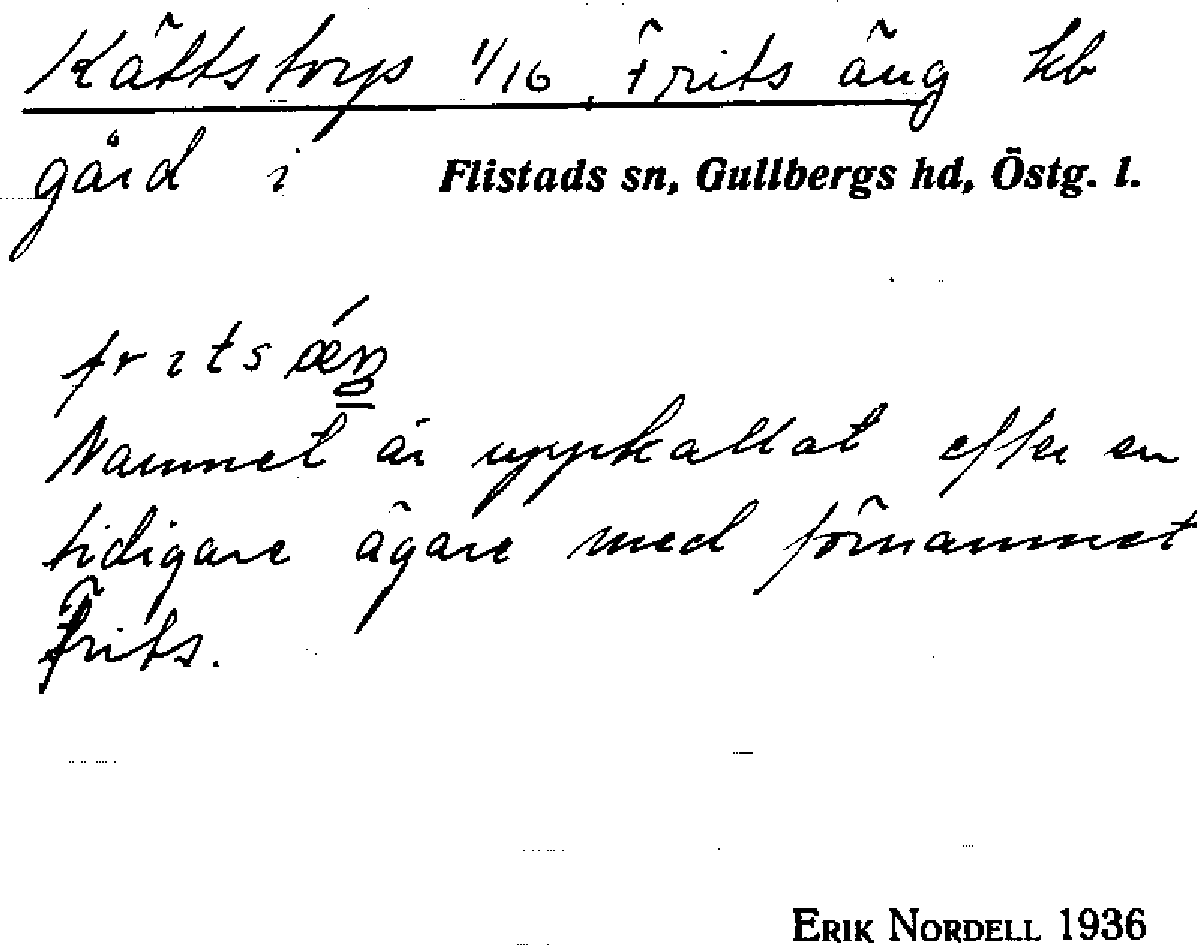 Kättstorp 1/16, Frits äng kb
gård i Flistads sn, Gullbergs hd, Östg. l.
Namnet är uppkallat efter en
tidigare ägare med förnamnet
Frits.
ERIK NORDELL 1936